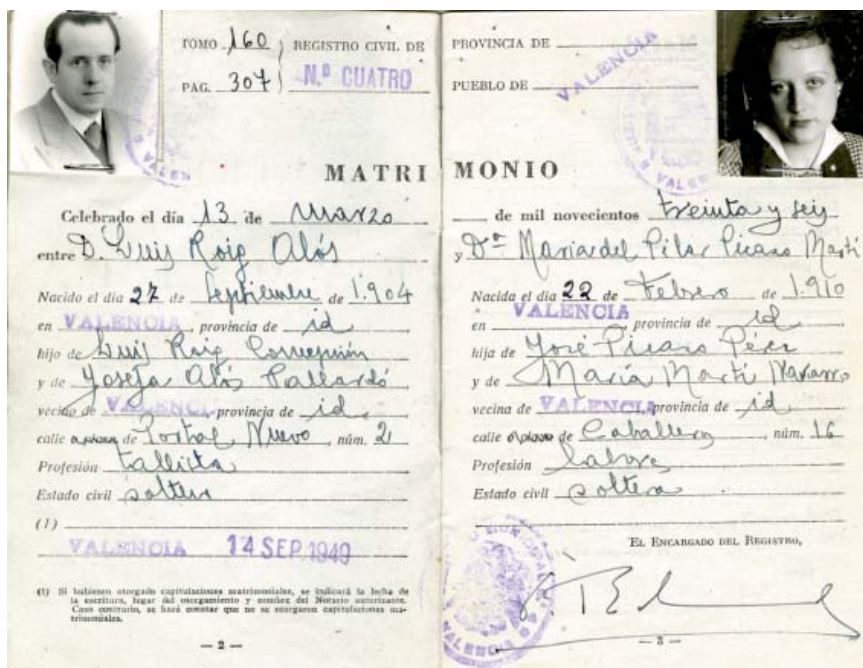 TOMO 160
PAG. 307
REGISTRO CIVIL DE
N.º CUATRO
MATRI
Celebrado el día 13 de Marzo
entre D. Luis Roig Alós
Nacido el dia 27 de Septiembre de 1.904
en VALENCIA, provincia de id
hijo de Luis Roig
y de Josefa Alós Pallardó
vecino de VALENCIA provincia de id.
calle o plaza de Portal Nuevo, núm. 2
Profesión tallista
Estado civil soltero
(1)
VALENCIA 14 SEP 1949
(1) Si hubiesen otorgado capitulaciones matrimoniales, se indicará la fecha de
la escritura, lugar del otorgamiento y nombre del Notario autorizante.
Caso contrario, se hará constar que no se otorgaron capitulaciones ma-
trimoniales.
— 2 —
PROVINCIA DE
VALENCIA
PUEBLO DE
MONIO
de mil novecientos treinta y seis
y Dª María del Pilar Picazo Martí
Nacida el día 22 de Febrero de 1.910
en VALENCIA, provincia de id
hija de José Picazo Pérez
y de María Martí Navarro
vecina de VALENCIA provincia de id
calle o plaza de Caballero, núm. 16
Profesión labores
Estado civil soltera
EL ENCARGADO DEL REGISTRO,
— 3 —